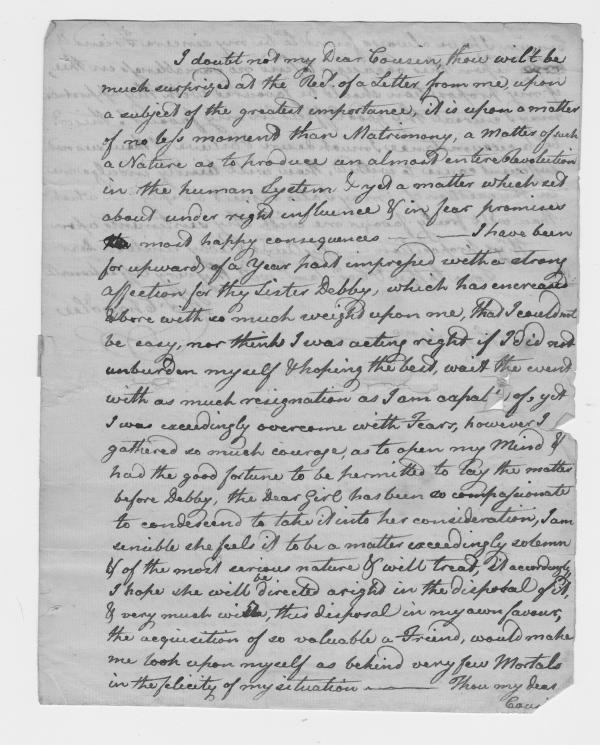 I doubt not my Dear Cousin, thou wilt be
much surprized at the Rect. of a Letter from me, upon
a subject of the greatest importance, it is upon a matter
of no less moment than Matrimony, a Matter of such
a Nature as to produce an almost entire Revolution
in the human System & yet a matter which set
about under right influence & in fear promises
most happy consequences ——— I have been
for upward of a Year past impressed with a strong
affection for thy Sister Debby, which has increased
& bore with so much weight upon me, that I could not
be easy, nor think I was acting right if I did not
unburden myself & hoping the best, wait the event
with as much resignation as I am capal of, yet
I was exceedingly overcome with Fears, however I
gathered so much courage, as to open my Mind &
had the good fortune to be permitted to lay the matter
before Debby, the Dear Girl has been so compasionate
to condescend to take it into her consideration, I am
sensible she feels it to be a matter exceedingly solemn
& of the most serious nature & will treat it accordingly,
I hope she will be directed aright in the disposal of it,
& very much wish, this disposal in my own favour,
the acquisition of so valuable a Friend, would make
me look upon myself as behind very few Mortals
in the felicity of my situation ——— Thou my dear
Cousi